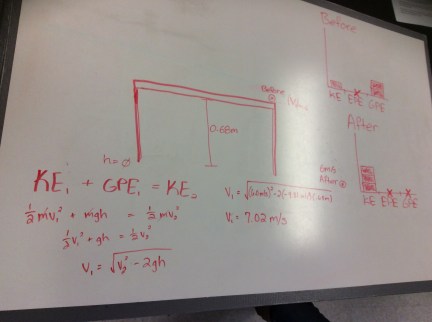 Before
KE EPE GPE
After
KE EPE GPE
Before
0.68m
h=0
After
KE₁ + GPE₁ = KE₂
½mv₁² + mgh = ½mv₂²
½v₁² + gh = ½v₂²
v₁ = √v₂² - 2gh
v₁ = 7.02 m/s